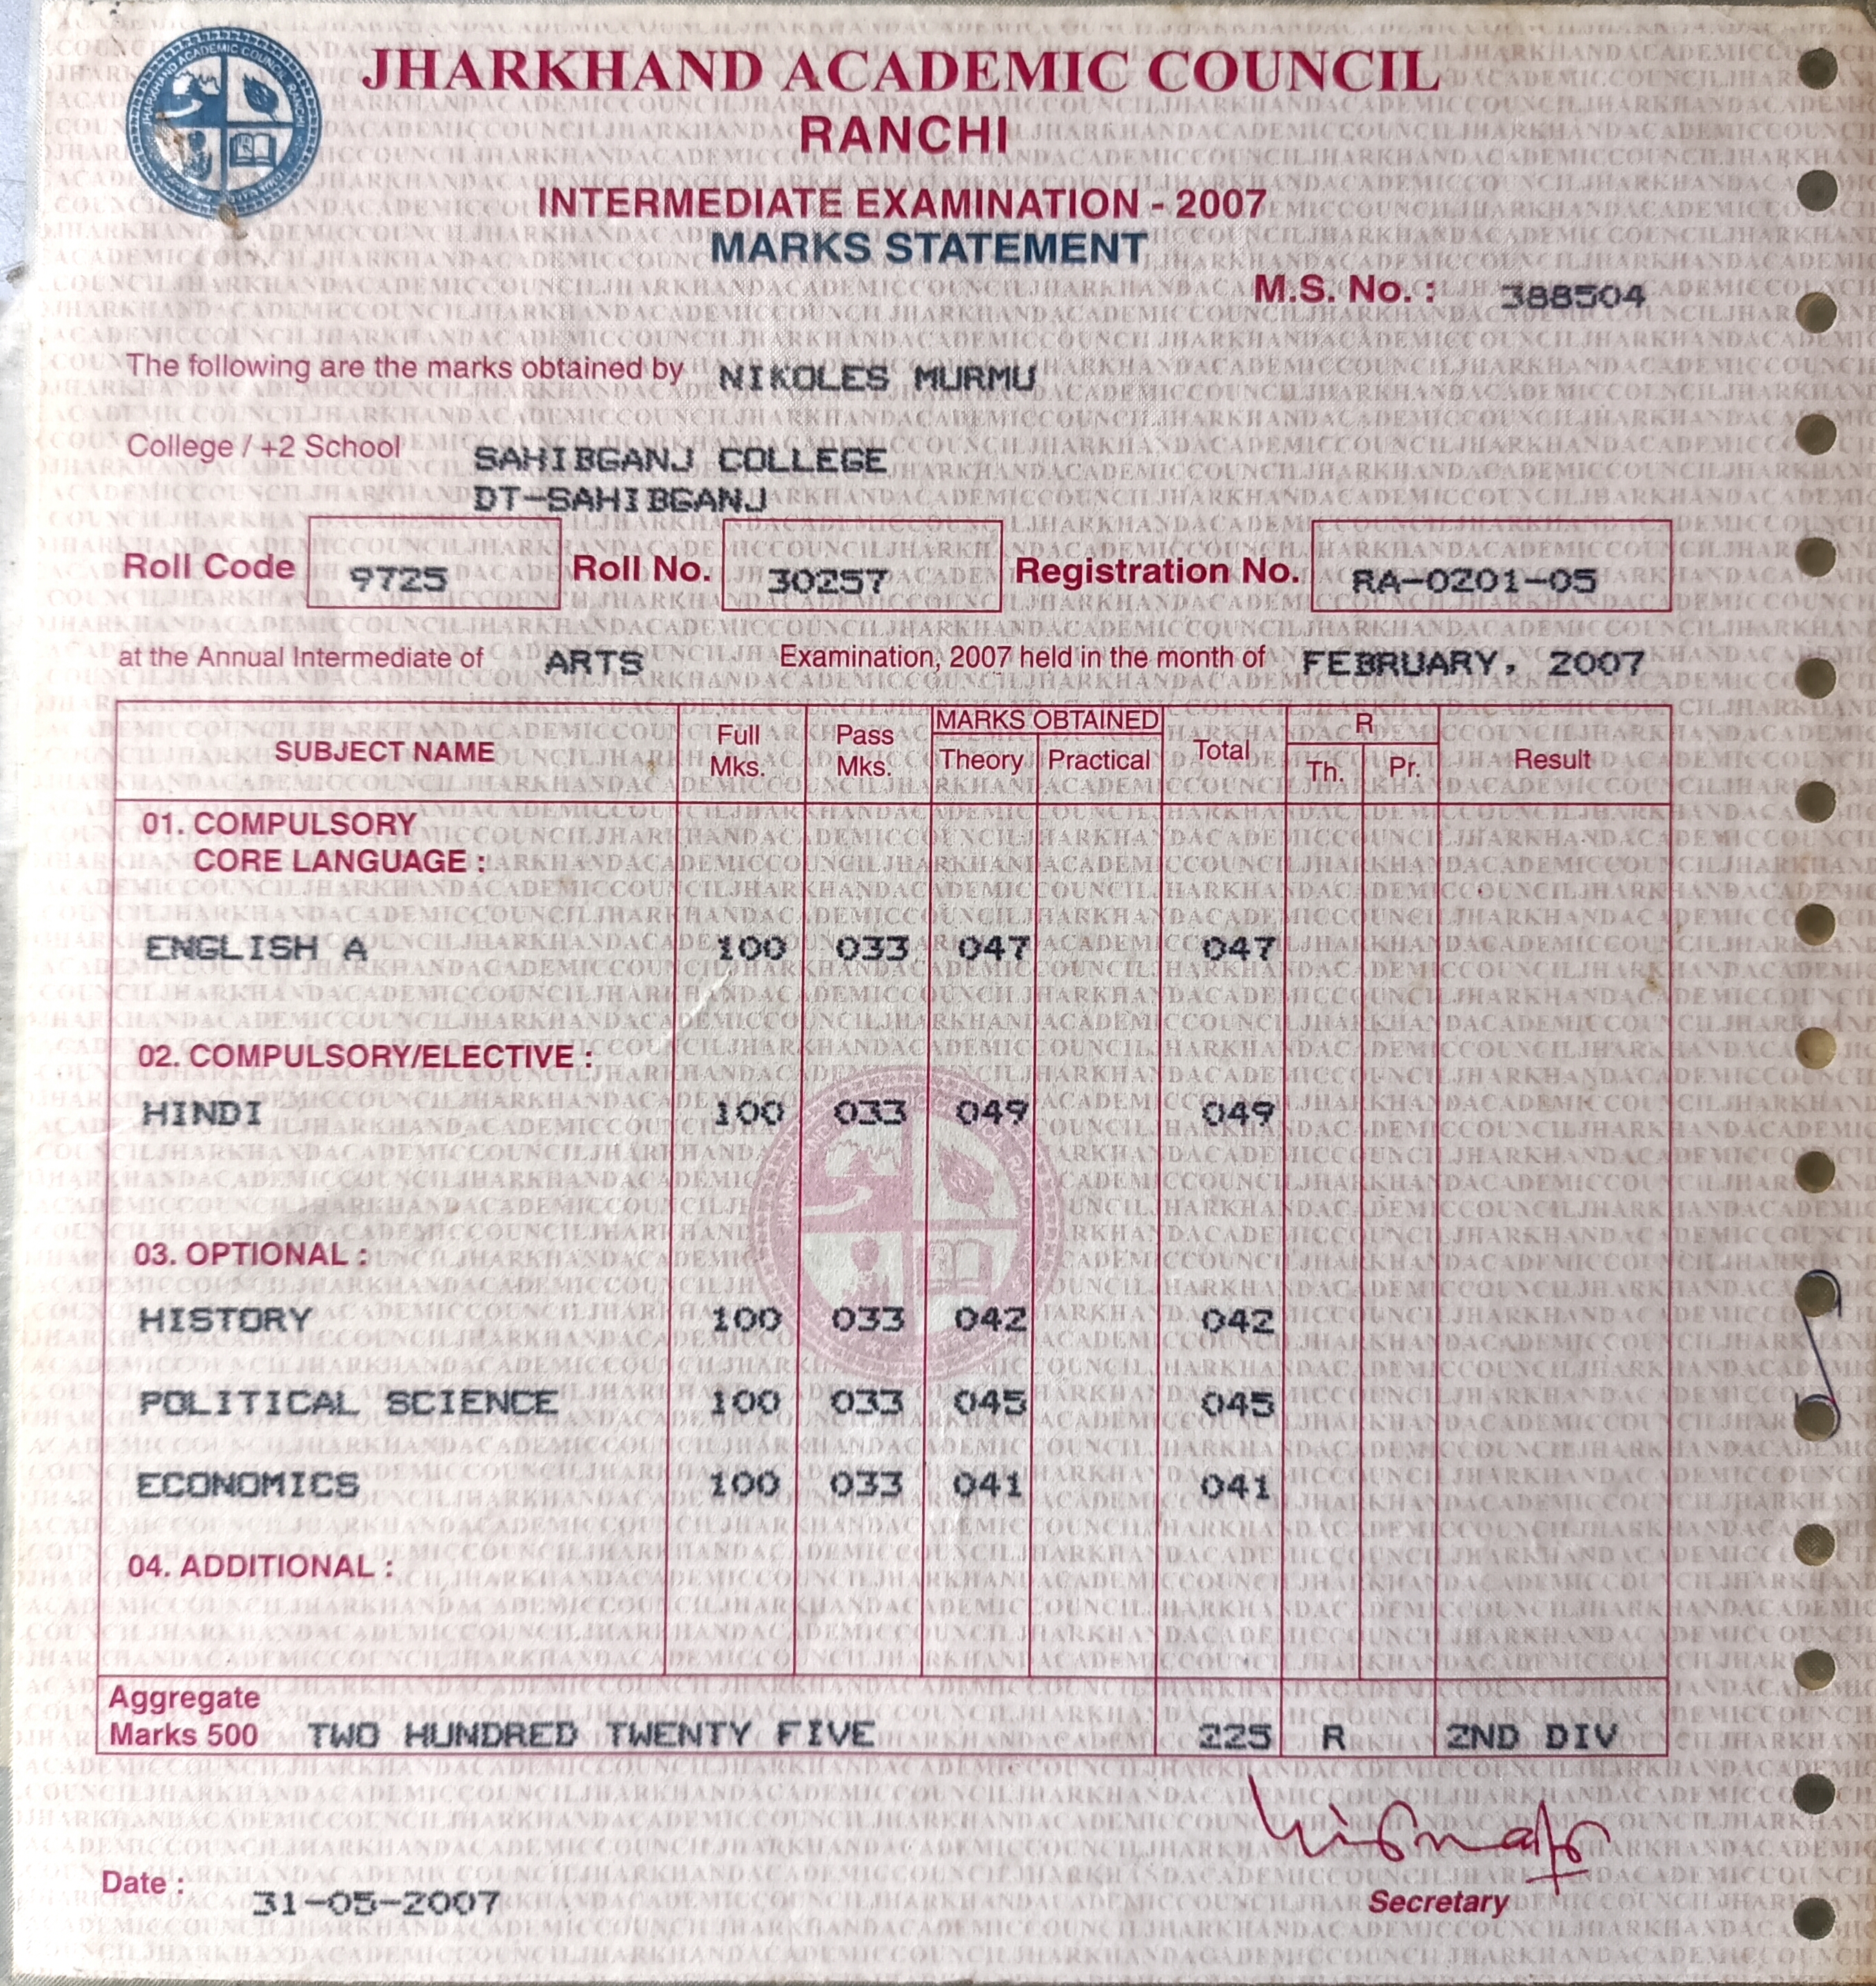 JHARKHAND ACADEMIC COUNCIL
RANCHI
INTERMEDIATE EXAMINATION - 2007
MARKS STATEMENT
M.S. No. : 388504
The following are the marks obtained by NIKOLES MURMU
College / +2 School SAHIBGANJ COLLEGE
DT-SAHIBGANJ
Roll Code 9725 Roll No. 30257 Registration No. RA-0201-05
at the Annual Intermediate of ARTS Examination, 2007 held in the month of FEBRUARY, 2007
SUBJECT NAME Full Mks. Pass Mks. MARKS OBTAINED Theory Practical Total R Th. Pr. Result
01. COMPULSORY
CORE LANGUAGE :
ENGLISH A 100 033 047 047
02. COMPULSORY/ELECTIVE :
HINDI 100 033 049 049
03. OPTIONAL :
HISTORY 100 033 042 042
POLITICAL SCIENCE 100 033 045 045
ECONOMICS 100 033 041 041
04. ADDITIONAL :
Aggregate
Marks 500 TWO HUNDRED TWENTY FIVE 225 R 2ND DIV
Date : 31-05-2007
Secretary